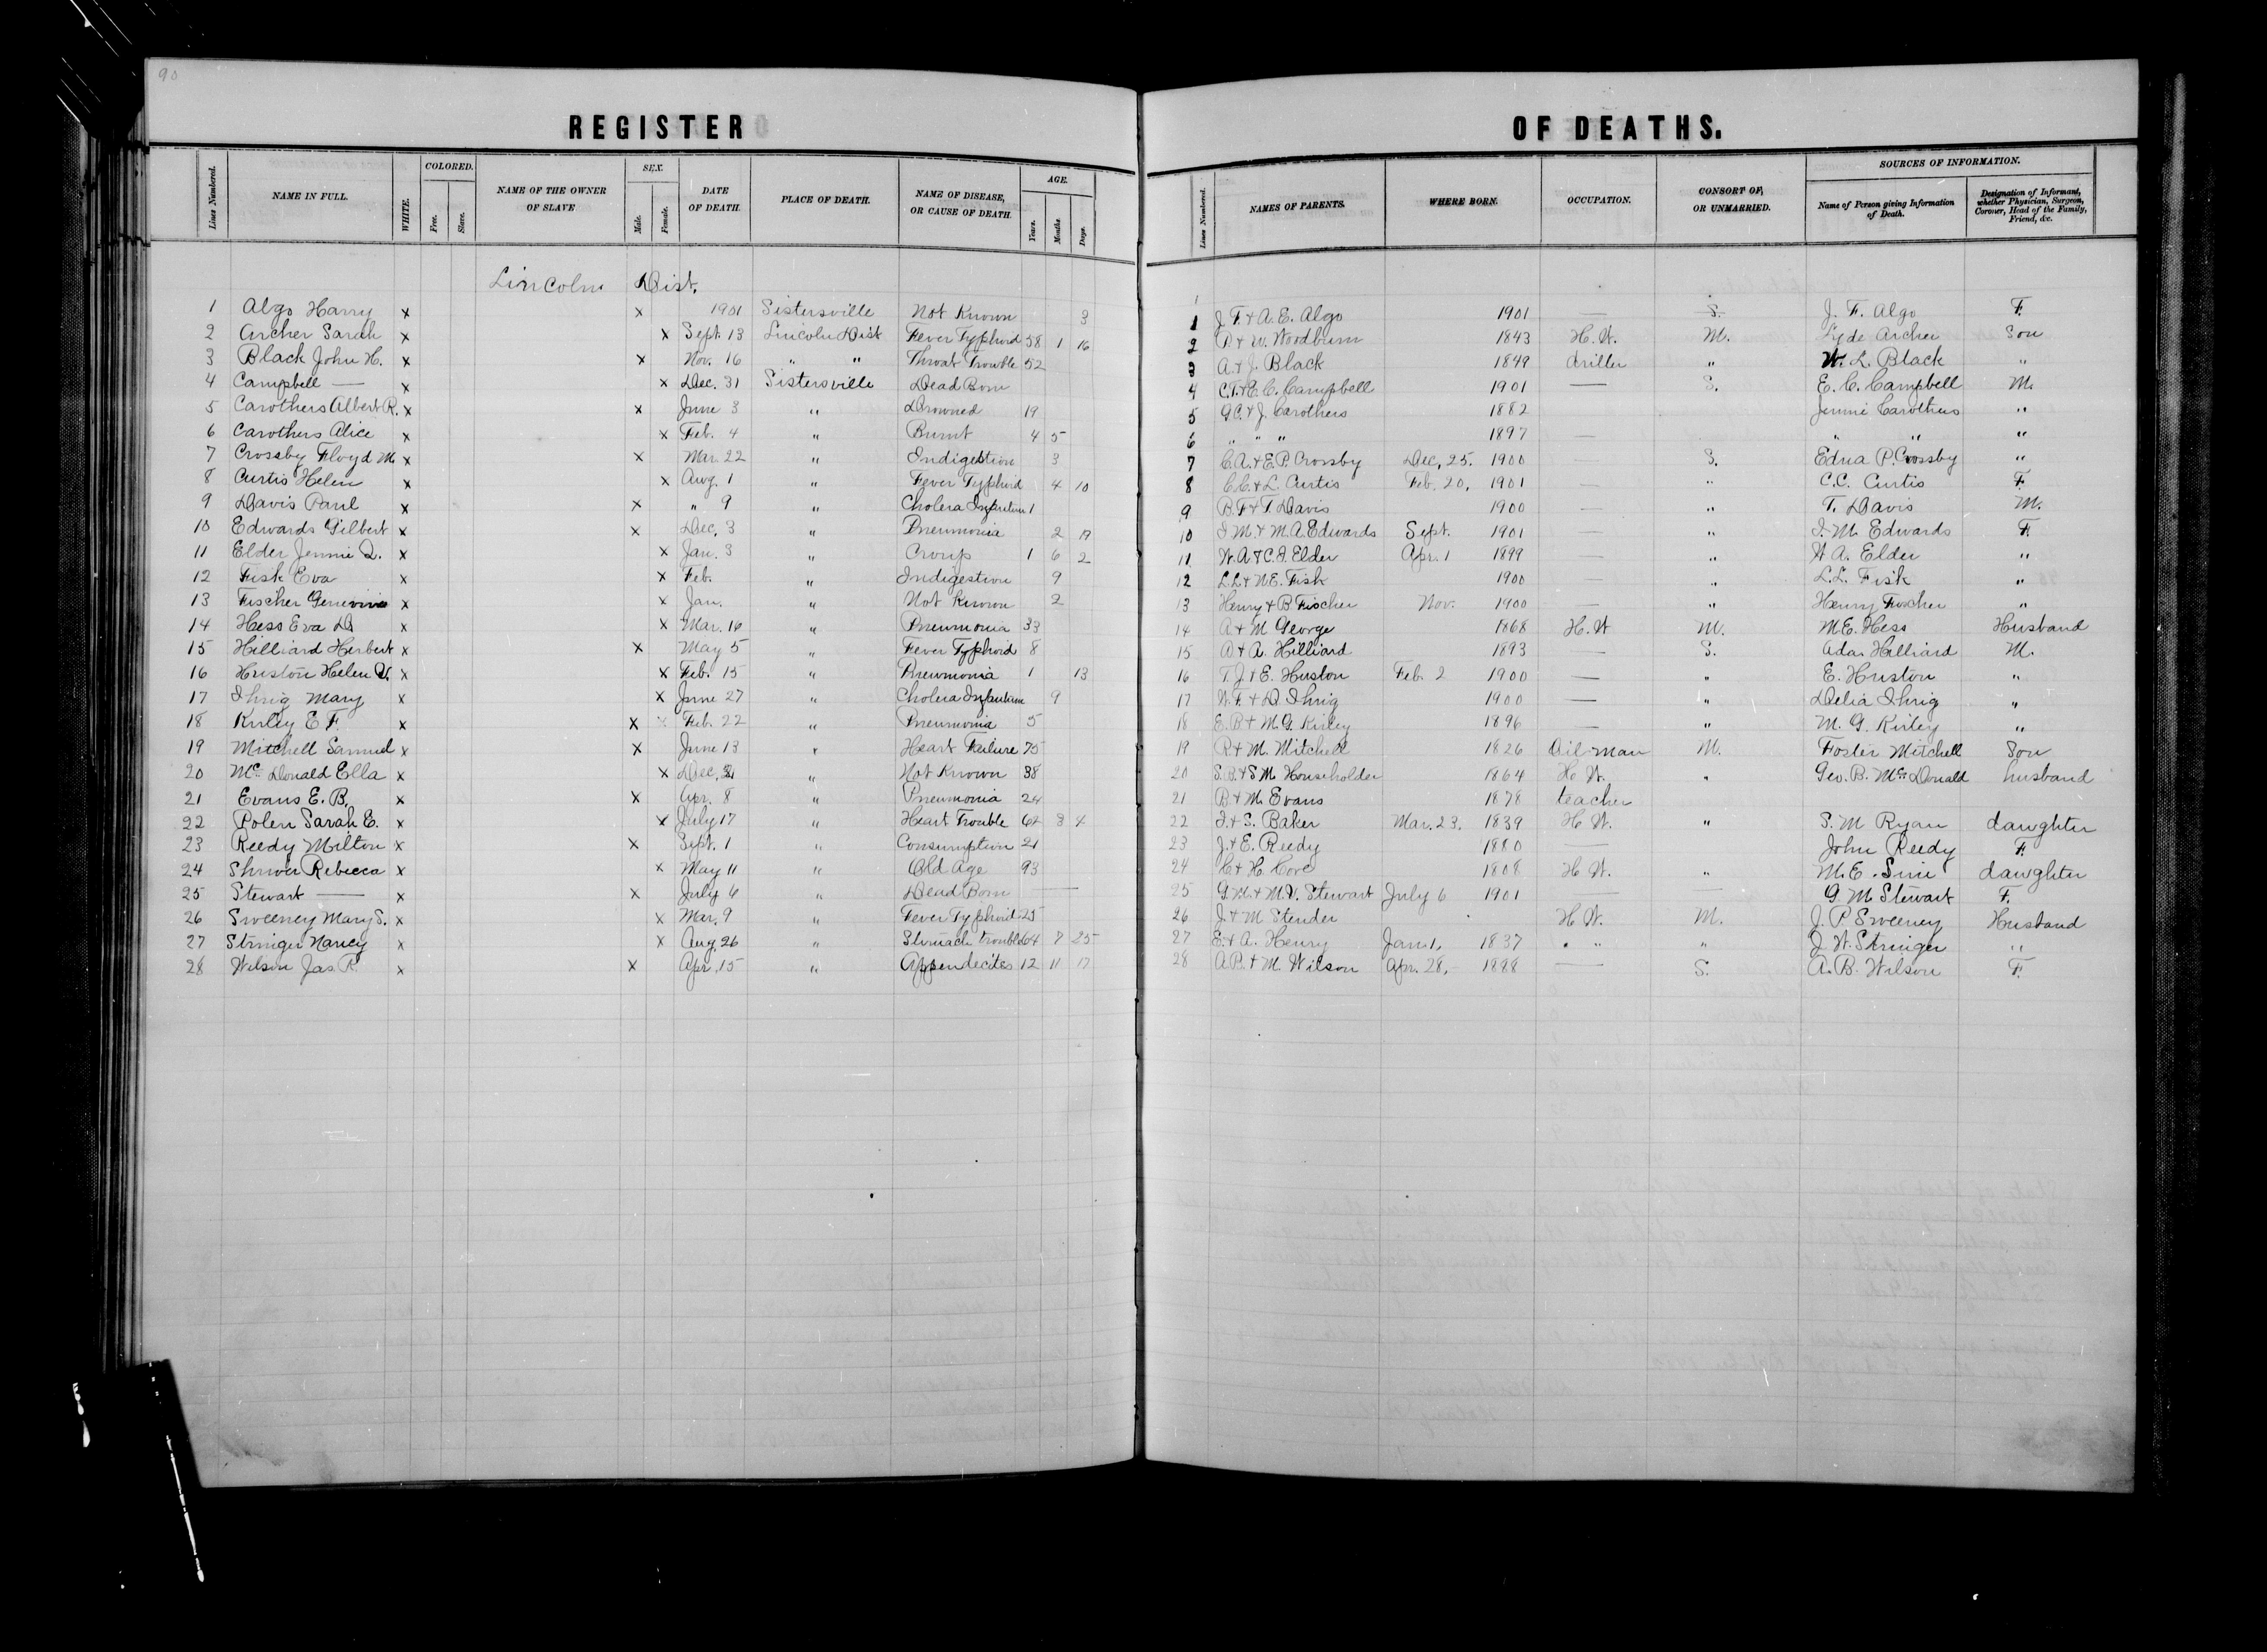 90
REGISTER OF DEATHS.
Lines Numbered. NAME IN FULL. WHITE. COLORED. Free. Slave. NAME OF THE OWNER OF SLAVE SEX. Male. Female. DATE OF DEATH. PLACE OF DEATH. NAME OF DISEASE, OR CAUSE OF DEATH. AGE. Years. Months. Days. Lines Numbered. NAMES OF PARENTS. WHERE BORN. OCCUPATION. CONSORT OF, OR UNMARRIED. SOURCES OF INFORMATION. Name of Person giving Information of Death. Designation of Informant, whether Physician, Surgeon, Coroner, Head of the Family, Friend, &c.
Lincoln Dist.
1 Algo Harry x x 1901 Sistersville Not Known 3 1 J. F. & A. E. Algo 1901 — S. J. F. Algo F.
2 Archer Sarah x x Sept. 13 Lincoln Dist Fever Typhoid 58 1 16 2 & W. Woodburn 1843 H. W. M. Lyde Archer Son
3 Black John H. x x Nov. 16 " " Throat Trouble 52 3 A. & J. Black 1849 driller " W. L. Black "
4 Campbell — x x Dec. 31 Sistersville Dead Born 4 C.T. & E. C. Campbell 1901 — S. E. C. Campbell M.
5 Carothers Albert R. x x June 3 " Drowned 19 5 G.C. & J. Carothers 1882 Jennie Carothers "
6 Carothers Alice x x Feb. 4 " Burnt 4 5 6 " " " 1897 — " " "
7 Crossby Floyd M. x x Mar. 22 " Indigestion 3 7 C. A. & E. P. Crossby Dec. 25. 1900 — S. Edna P. Crossby "
8 Curtis Helen x x Aug. 1 " Fever Typhoid 4 10 8 C. C. & L. Curtis Feb. 20, 1901 — " C.C. Curtis F.
9 Davis Paul x x " 9 " Cholera Infantum 1 9 B. F & T. Davis 1900 — " T. Davis M.
10 Edwards Gilbert x x Dec. 3 " Pneumonia 2 10 I. M. & M. A. Edwards Sept. 1901 — " I. M. Edwards F.
11 Elder Jennie x x Jan. 3 " Croup 1 6 2 11 W. A. & C. Elder Apr. 1 1899 — " W. A. Elder "
12 Fisk Eva x x Feb. " Indigestion 9 12 L. L. & N. E. Fisk 1900 — " L. L. Fisk "
13 Fischer x x Jan. " Not Known 2 13 Henry & B Fischer Nov. 1900 — " Henry Fischer "
14 Hess Eva D x x Mar. 16 " Pneumonia 33 14 A. & M George 1868 H. W M. M. E. Hess Husband
15 Hilliard Herbert x x May 5 " Fever Typhoid 8 15 & A. Hilliard 1893 — S. Ada Hilliard M.
16 Huston Helen V. x x Feb. 15 " Pneumonia 1 13 16 T. J. & E. Huston Feb. 2 1900 — " E. Huston "
17 Ihrig Mary x x June 27 " Cholera Infantum 9 17 W. F. & D. Ihrig 1900 — " Delia Ihrig "
18 Kirley E F. x x Feb. 22 " Pneumonia 5 18 E. B & M. G. Kirley 1896 — " M. G. Kirley "
19 Mitchell Samuel x x June 13 " Heart Failure 75 19 R & M. Mitchell 1826 Oil man M. Foster Mitchell Son
20 Mc Donald Ella x x Dec. " Not Known 38 20 S. B. & S M. Householder 1864 H W. " Geo. B. Mc Donald husband
21 Evans E. B. x x Apr. 8 " Pneumonia 24 21 B & M. Evans 1878 teacher
22 Polen Sarah E. x x July 17 " Heart Trouble 62 3 4 22 I. & S. Baker Mar. 23. 1839 H W. " S. M Ryan daughter
23 Reedy Milton x x Sept. 1 " Consumption 21 23 J. & E. Reedy 1880 — John Reedy F.
24 Shriver Rebecca x x May 11 " Old Age 93 24 C & H. Core 1808 H W. " M. E. daughter
25 Stewart — x x July 6 " Dead Born — 25 G. M. & M. V. Stewart July 6 1901 — — G. M Stewart F.
26 Sweeney Mary S. x x Mar. 9 " Fever Typhoid 25 26 J. & M Stender H W. M. J. P. Sweeney Husband
27 Stringer Nancy x x Aug. 26 " Stomach trouble 64 7 25 27 E. & A. Henry Jan. 1, 1837 " " " J. W. Stringer "
28 Wilson Jas. R. x x Apr. 15 " Appendecites 12 11 17 28 A. B. & M. Wilson Apr. 28, 1888 — S. A. B. Wilson F.